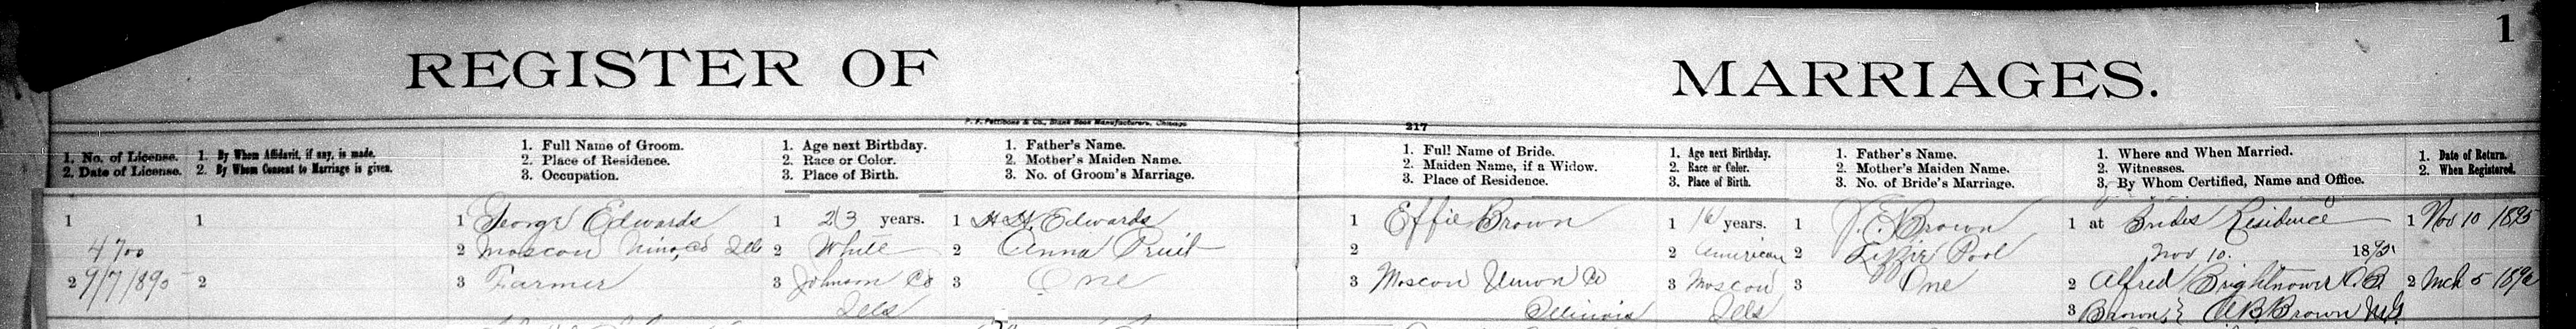 1
REGISTER OF MARRIAGES.
P. F. Pettibone & Co., Blank Book Manufacturers, Chicago
217
1. No. of License.
2. Date of License.
1. By Whom Affidavit, if any, is made.
2. By Whom Consent to Marriage is given.
1. Full Name of Groom.
2. Place of Residence.
3. Occupation.
1. Age next Birthday.
2. Race or Color.
3. Place of Birth.
1. Father's Name.
2. Mother's Maiden Name.
3. No. of Groom's Marriage.
1. Full Name of Bride.
2. Maiden Name, if a Widow.
3. Place of Residence.
1. Age next Birthday.
2. Race or Color.
3. Place of Birth.
1. Father's Name.
2. Mother's Maiden Name.
3. No. of Bride's Marriage.
1. Where and When Married.
2. Witnesses.
3. By Whom Certified, Name and Office.
1. Date of Return.
2. When Registered.
1
4700
2
1
2
1 George Edwards
2 Moscow Co Ills
3 Farmer
1 23 years.
2 White
3 Johnson Co
Ills
1 H. H. Edwards
2 Anna Pruit
3 One
1 Effie Brown
2
3 Moscow Union Co
Illinois
1 16 years.
2 American
3 Moscow
Ills
1 Brown
2 Lizzie Pool
3 One
1 at Brides Residence
Nov 10. 18
2 Alfred Brightnower A. B.
3 Brown, A. B. Brown M.G.
1 Nov 10 1895
2 Mch 5